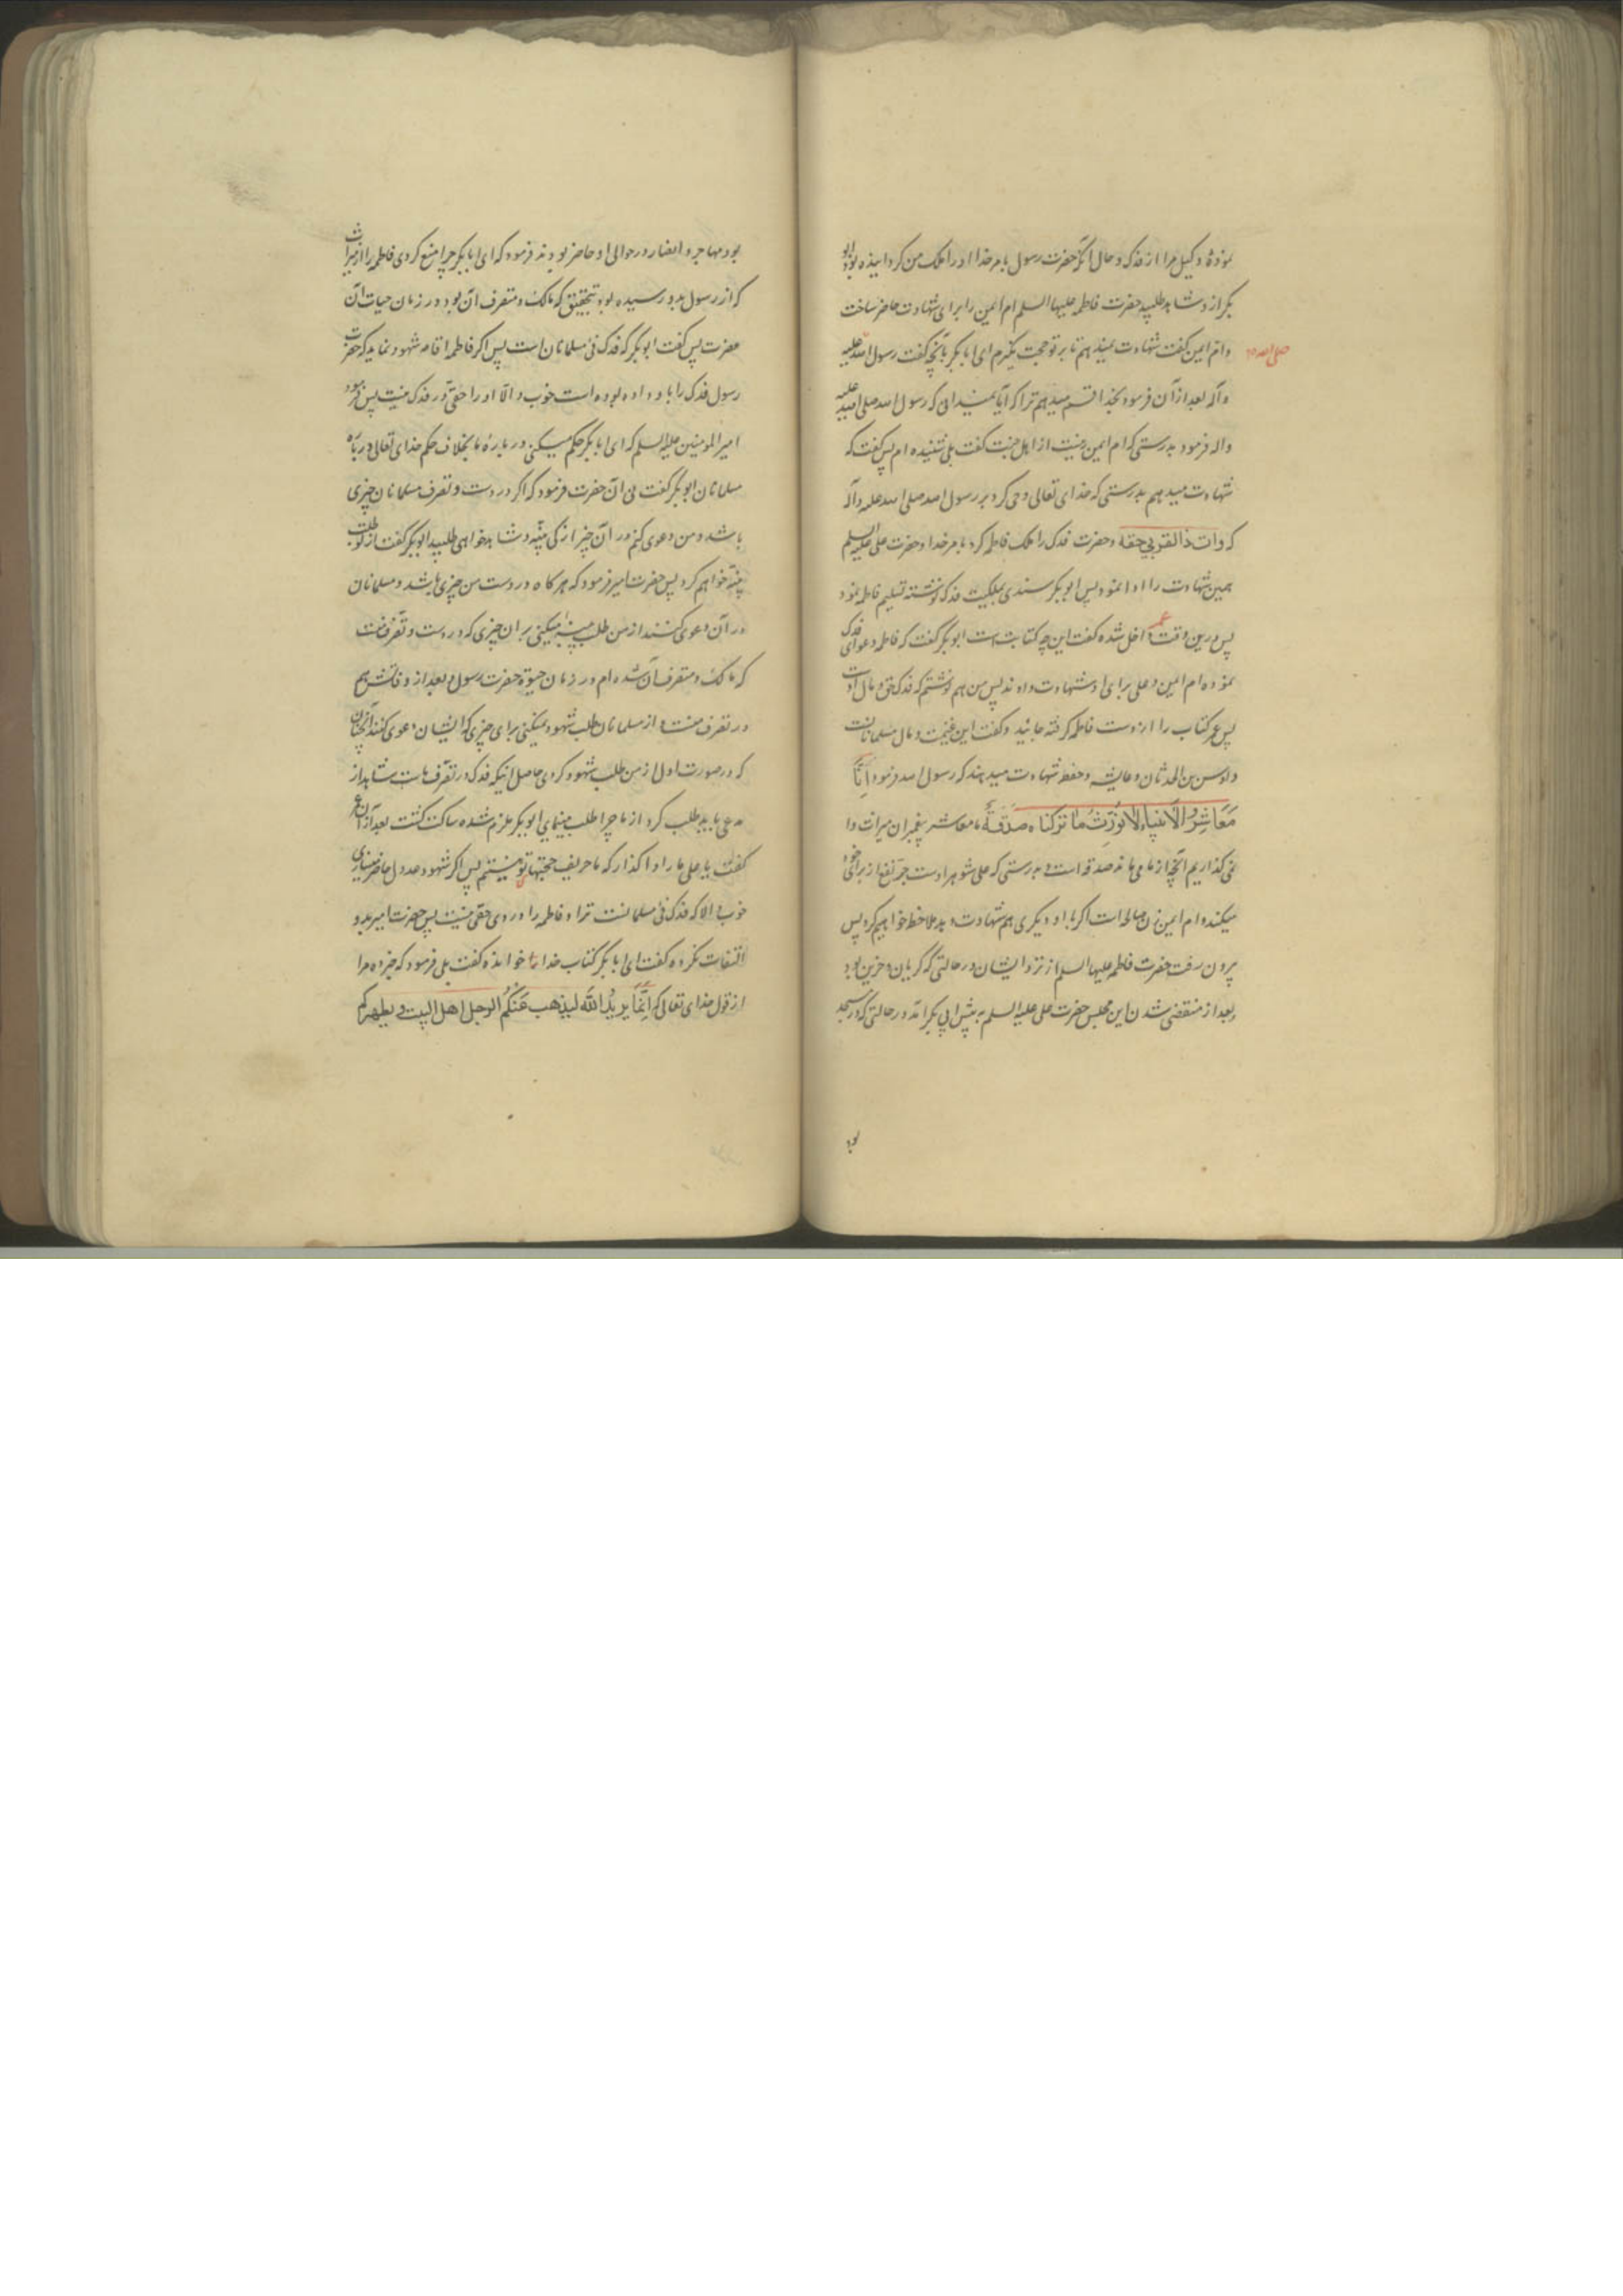 نموده و کیل مرا از فدک و حال انکه حضرت رسول بامر خدا او را ملک من کردانیده بود ابو
بکر ازو شاهد طلبید حضرت فاطمه علیها السلم ام ایمن را برای شهادت حاضر ساخت
و ام ایمن گفت شهادت نمیدهم تا بر تو حجت نگیرم ای ابا بکر بآنچه گفت رسول الله صلی الله علیه
و آله بعد از آن فرمود بخدا قسم میدهم ترا که آیا نمیدانی که رسول الله صلی الله علیه
واله فرمود بدرستی که ام ایمن زنیست از اهل جنت گفت بلی شنیده ام پس گفت که
شهادت میدهم بدرستی که خدای تعالی وحی کرد بر رسول الله صلی الله علیه وآله
که وات ذا القربی حقه و حضرت فدک را ملک فاطمه کرد بامر خدا و حضرت علی علیه السلم
همین شهادت را ادا نمود پس ابو بکر سندی بملکیت فدک نوشته تسلیم فاطمه نمود
پس درین وقت عمر داخل شده گفت این چه کتابت است ابو بکر گفت که فاطمه دعوای فدک
نموده ام ایمن و علی برای او شهادت دادند پس من هم نوشتم که فدک حق و مال اوست
پس عمر کتاب را از دست فاطمه گرفته خائید و گفت این غنیمت و مال مسلمانانست
و اوس بن الحدثان و عایشه و حفصه شهادت میدهند که رسول الله فرمود اِنّا
مَعَاشِرُ الاَنبِیاءِ لا نُوَرِّثُ مٰا تَرَکناه صَدَقَةٌ ما معاشر پیغمبران میراث وا
نمی گذاریم آنچه از ما می ماند صدقه است و بدرستی که علی شوهر اوست جر نفع از برای خود
میکند و ام ایمن زن صالحه است اگر با او دیگری هم شهادت دهد ملاحظه خواهیم کرد پس
بیرون رفت حضرت فاطمه علیها السلم از نزد ایشان در حالتی که گریان و حزین بود
و بعد از منقضی شدن این مجلس حضرت علی علیه السلم به پیش ابی بکر آمد در حالتی که در مسجد
بود
بود مهاجر و انصار در حوالی او حاضر بودند فرمود که ای ابا بکر چرا منع کردی فاطمه را از میراث
که از رسول بدو رسیده بود بتحقیق که مالک و متصرف آن بود در زمان حیات آن
حضرت پس گفت ابو بکر که فدک فئ مسلمانان است پس اکر فاطمه اقامه شهود نماید که حضرت
رسول فدک را باو داده بوده است خوب و الّا او را حقی در فدک نیست پس فرمود
امیر المومنین علیه السلم که ای ابا بکر حکم میکنی در باره ما بخلاف حکم خدای تعالی در باره
مسلمانان ابو بکر گفت نی آن حضرت فرمود که اکر در دست و تصرف مسلمانان چیزی
باشد و من دعوی کنم در آن چیز از کی بینه و شاهد خواهی طلبید ابو بکر گفت از تو طلب
بینه خواهم کرد پس حضرت امیر فرمود که هر کاه در دست من چیزی باشد و مسلمانان
در آن دعوی کنند از من طلب بینه میکنی بر ان چیزی که در دست و تصرف منست
که مالک و متصرف آن شده ام در زمان حیوة حضرت رسول و بعد از وفاتش هم
در تصرف منست و از مسلمانان طلب شهود نمیکنی برای چیزی که ایشان دعوی کنند آنچنان
که در صورت اول از من طلب شهود کردی حاصل اینکه فدک در تصرف ماست شاهد از
مدعی باید طلب کرد از ما چرا طلب مینمایی ابو بکر ملزم شده ساکت گشت بعد از ان عمر
گفت یا علی ما را واگذار که ما حریف حجتهای تو نیستیم پس اکر شهود عدول حاضر میسازی
خوب والا که فدک فئ مسلمانست ترا و فاطمه را در وی حقی نیست پس حضرت امیر بدو
التفات نکرده گفت ای ابا بکر کتاب خدا را خوانده گفت بلی فرمود که خبر ده مرا
از قول خدای تعالی که اِنَّمٰا یریدُ اللّٰه لیذهب عَنکُم الرجس اهل البیت و یطهرکم